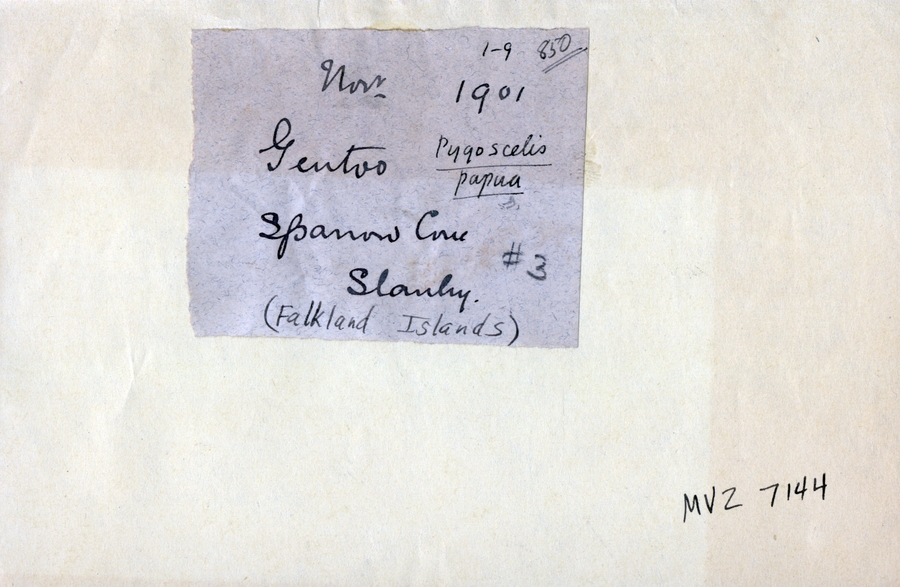 1-9 850
Novr 1901
Gentoo Pygoscelis
papua
Sparrow Cove
#3
Stanley.
(Falkland Islands)
MVZ 7144